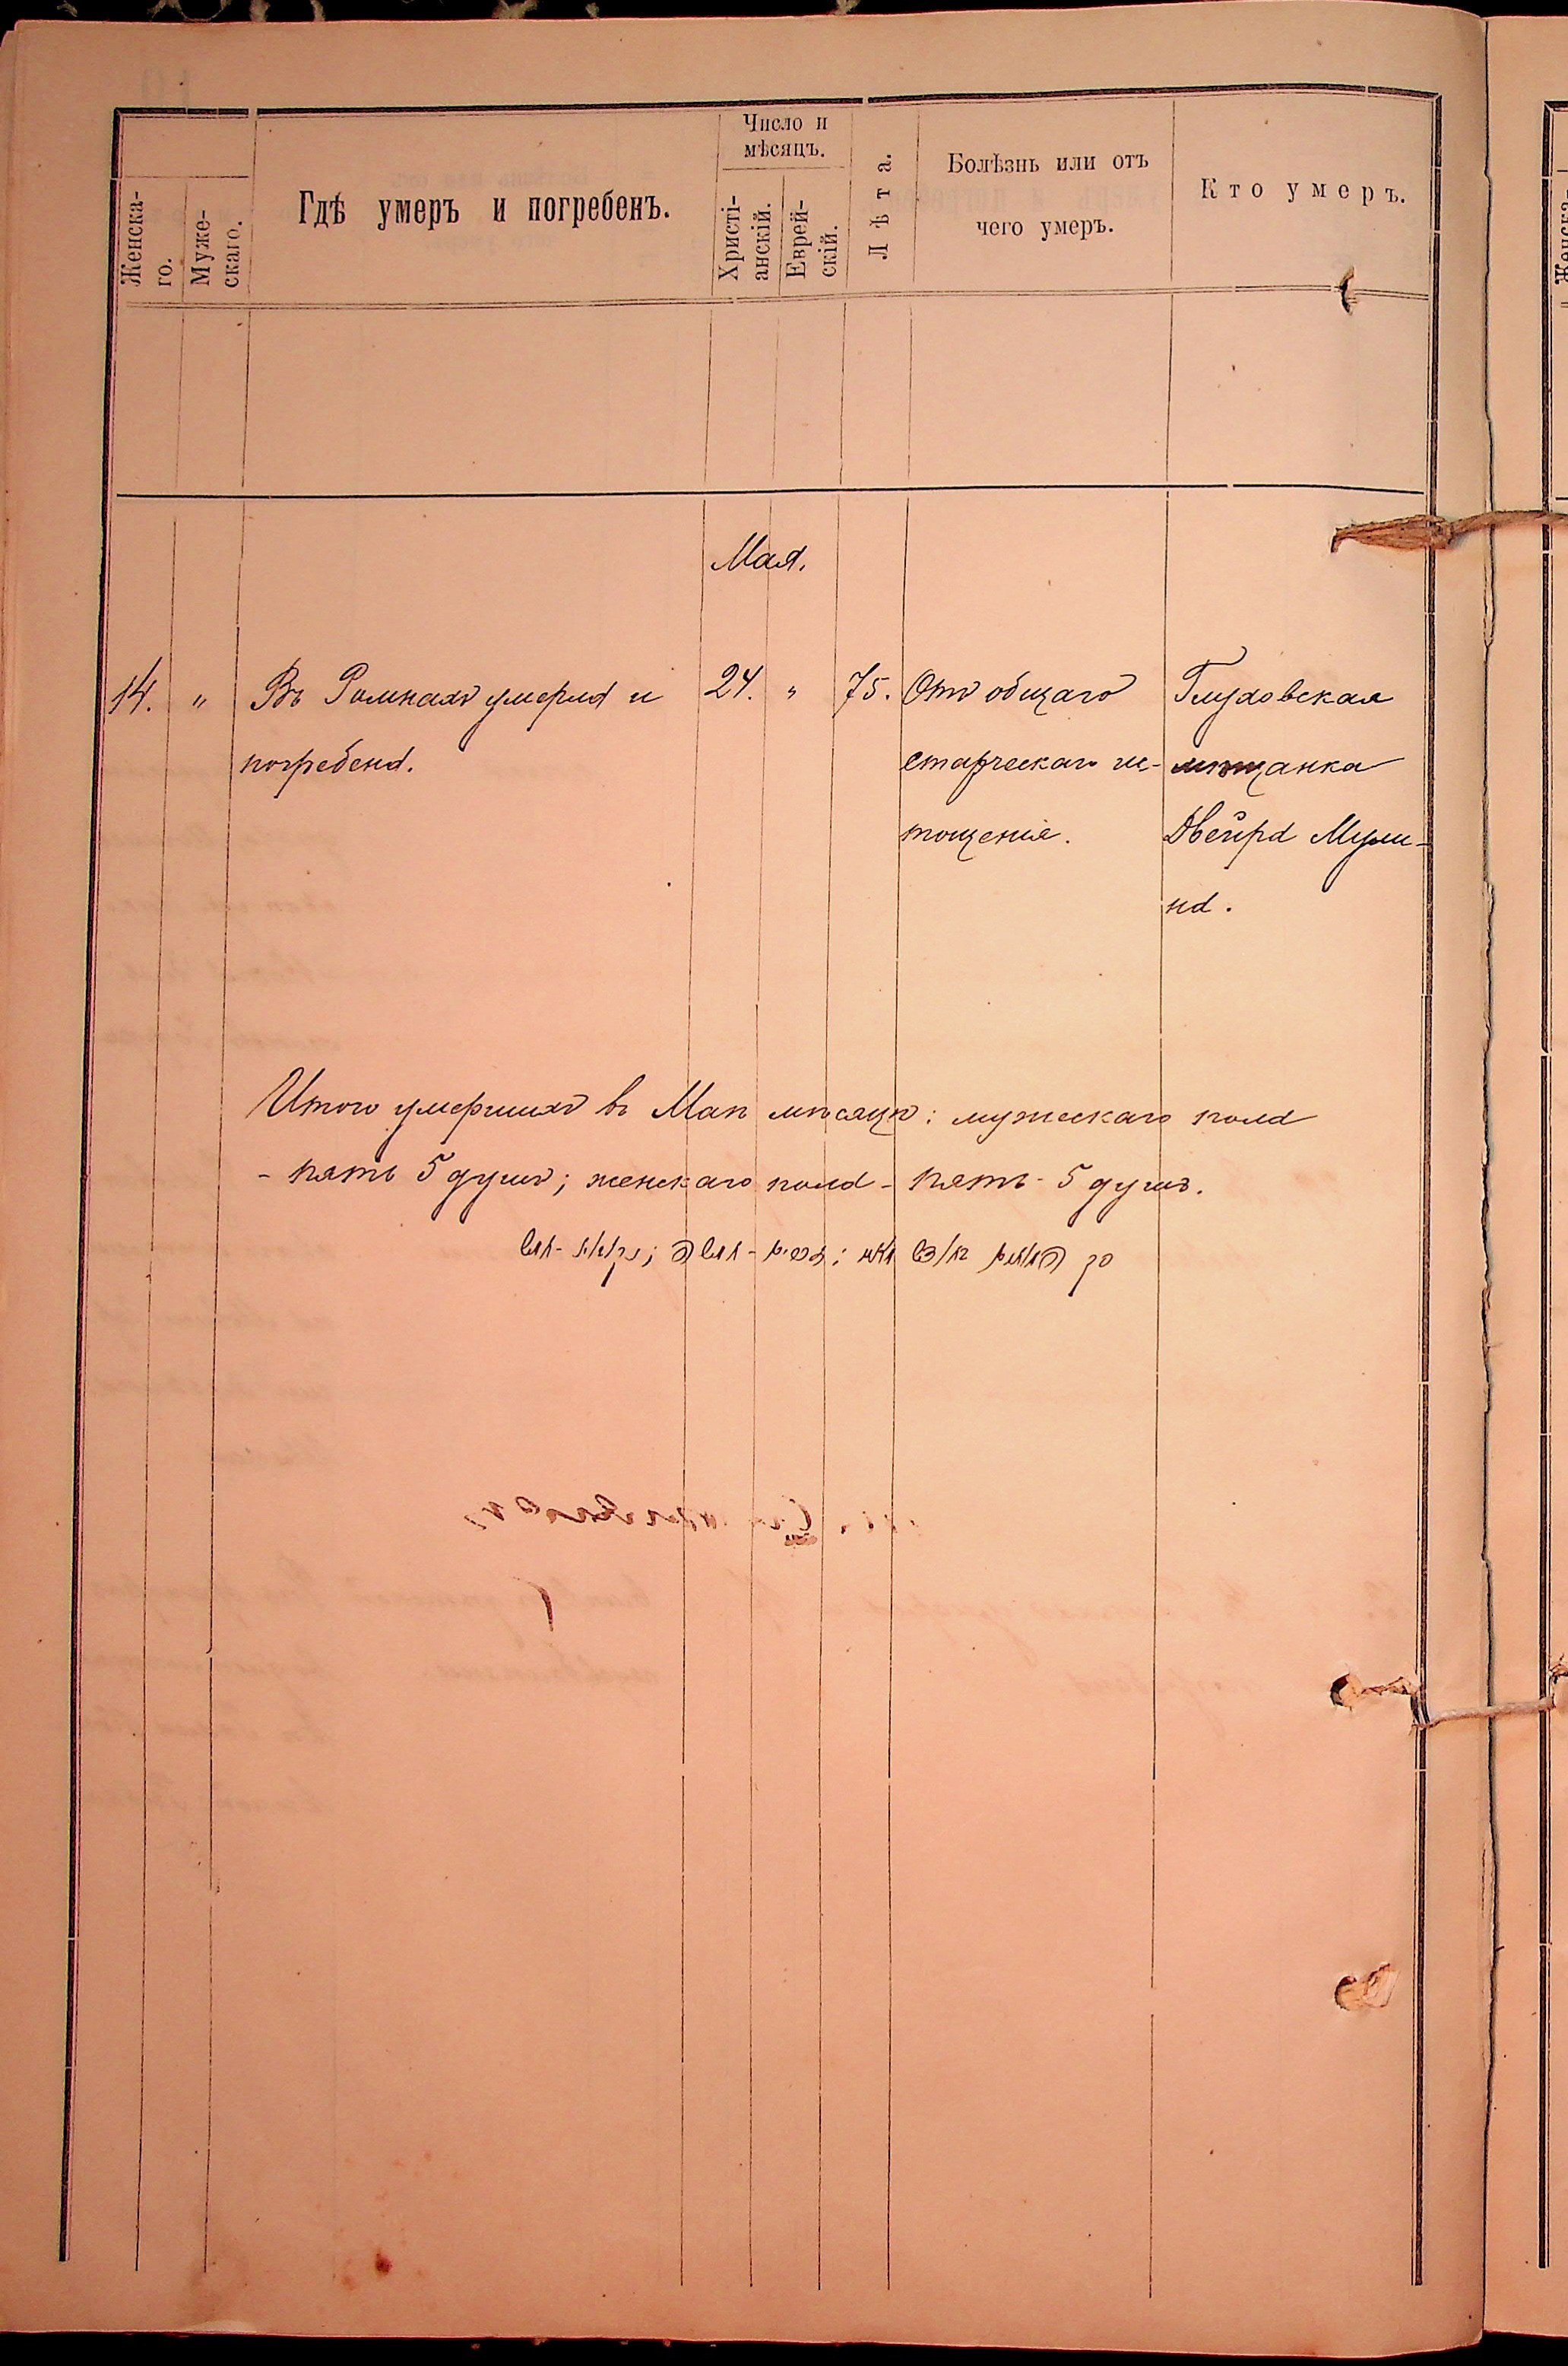 Женска-
го.
Муже-
скаго.
Гдѣ умеръ и погребенъ.
Число и
мѣсяцъ.
Христі-
анскій.
Еврей-
скій.
Лѣта.
Болѣзнь или отъ
чего умеръ.
Кто умеръ.
Мая.
14. " Въ Ромнахъ умерла и 24. " 75. Отъ общаго Глуховская
погребена. старческаго ис- мѣщанка
тощенія. Двейра Мули-
на.
Итого умершихъ въ Маѣ мѣсяцѣ: мужескаго пола
- пять 5 душъ; женскаго пола - пять - 5 душъ.